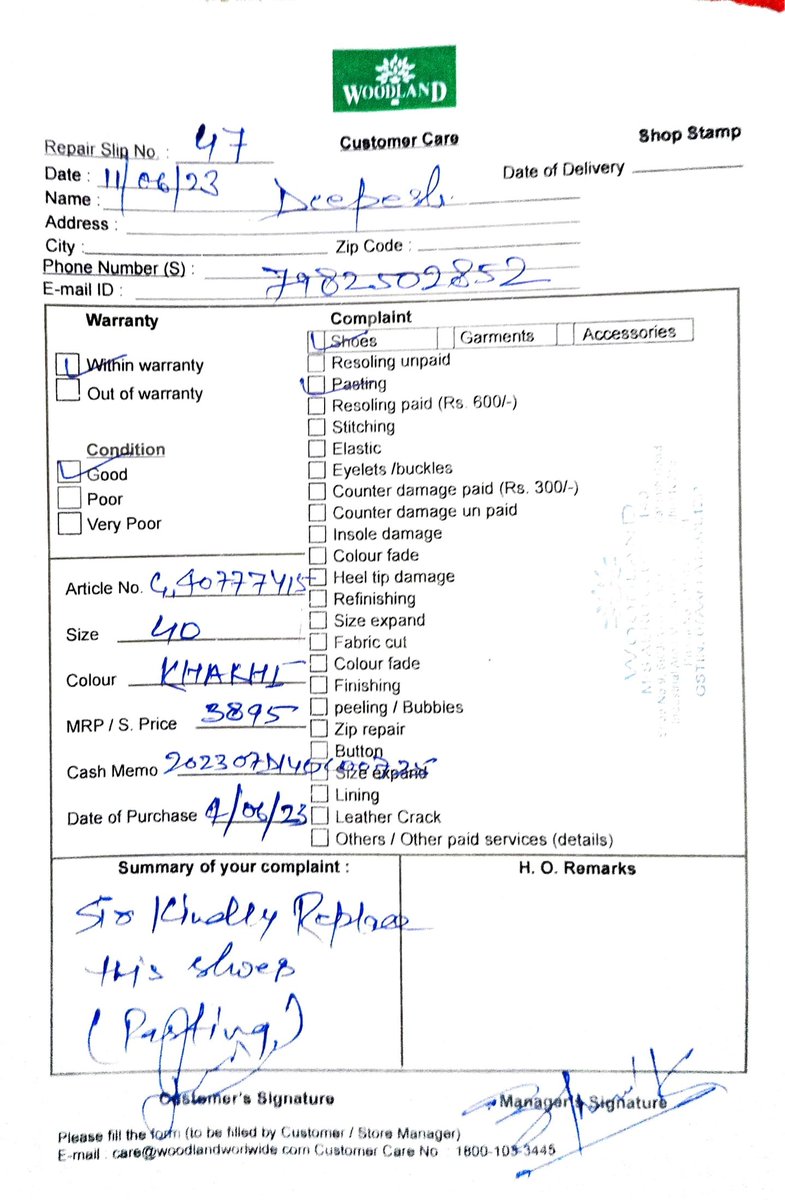 WOODLAND
Customer Care
Shop Stamp
Repair Slip No. : 47
Date : 11/06/23
Date of Delivery
Name : Deepesh
Address :
City :
Zip Code :
Phone Number (S) : 7982509852
E-mail ID :
Warranty
Within warranty
Out of warranty
Condition
Good
Poor
Very Poor
Article No. G,40777415
Size 40
Colour KHAKHI
MRP / S. Price 3895
Cash Memo
Date of Purchase /06/23
Complaint
Shoes
Garments
Accessories
Resoling unpaid
Pasting
Resoling paid (Rs. 600/-)
Stitching
Elastic
Eyelets /buckles
Counter damage paid (Rs. 300/-)
Counter damage un paid
Insole damage
Colour fade
Heel tip damage
Refinishing
Size expand
Fabric cut
Colour fade
Finishing
peeling / Bubbles
Zip repair
Button
Size expand
Lining
Leather Crack
Others / Other paid services (details)
WOODLAND
Summary of your complaint :
Sir Kindly Replace
this shoes
(Pasting,)
H. O. Remarks
Customer's Signature
Manager's Signature
Please fill the form (to be filled by Customer / Store Manager)
E-mail : care@woodlandworlwide com Customer Care No : 1800-103-3445